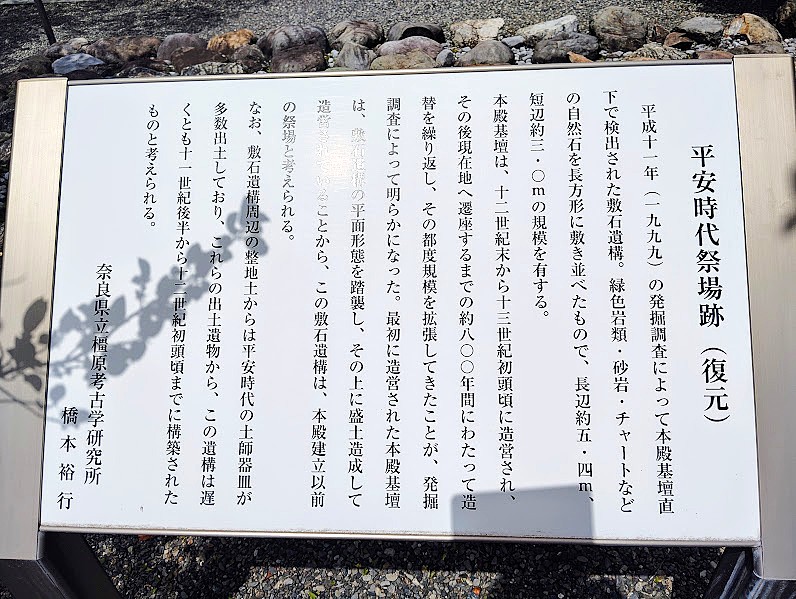 平安時代祭場跡（復元）
平成十一年（一九九九）の発掘調査によって本殿基壇直
下で検出された敷石遺構。緑色岩類・砂岩・チャートなど
の自然石を長方形に敷き並べたもので、長辺約五・四ｍ、
短辺約三・〇ｍの規模を有する。
本殿基壇は、十二世紀末から十三世紀初頭頃に造営され、
その後現在地へ遷座するまでの約八〇〇年間にわたって造
替を繰り返し、その都度規模を拡張してきたことが、発掘
調査によって明らかになった。最初に造営された本殿基壇
は、敷石遺構の平面形態を踏襲し、その上に盛土造成して
造営 ることから、この敷石遺構は、本殿建立以前
の祭場と考えられる。
なお、敷石遺構周辺の整地土からは平安時代の土師器皿が
多数出土しており、これらの出土遺物から、この遺構は遅
くとも十一世紀後半から十二世紀初頭頃までに構築された
ものと考えられる。
奈良県立橿原考古学研究所
橋本裕行